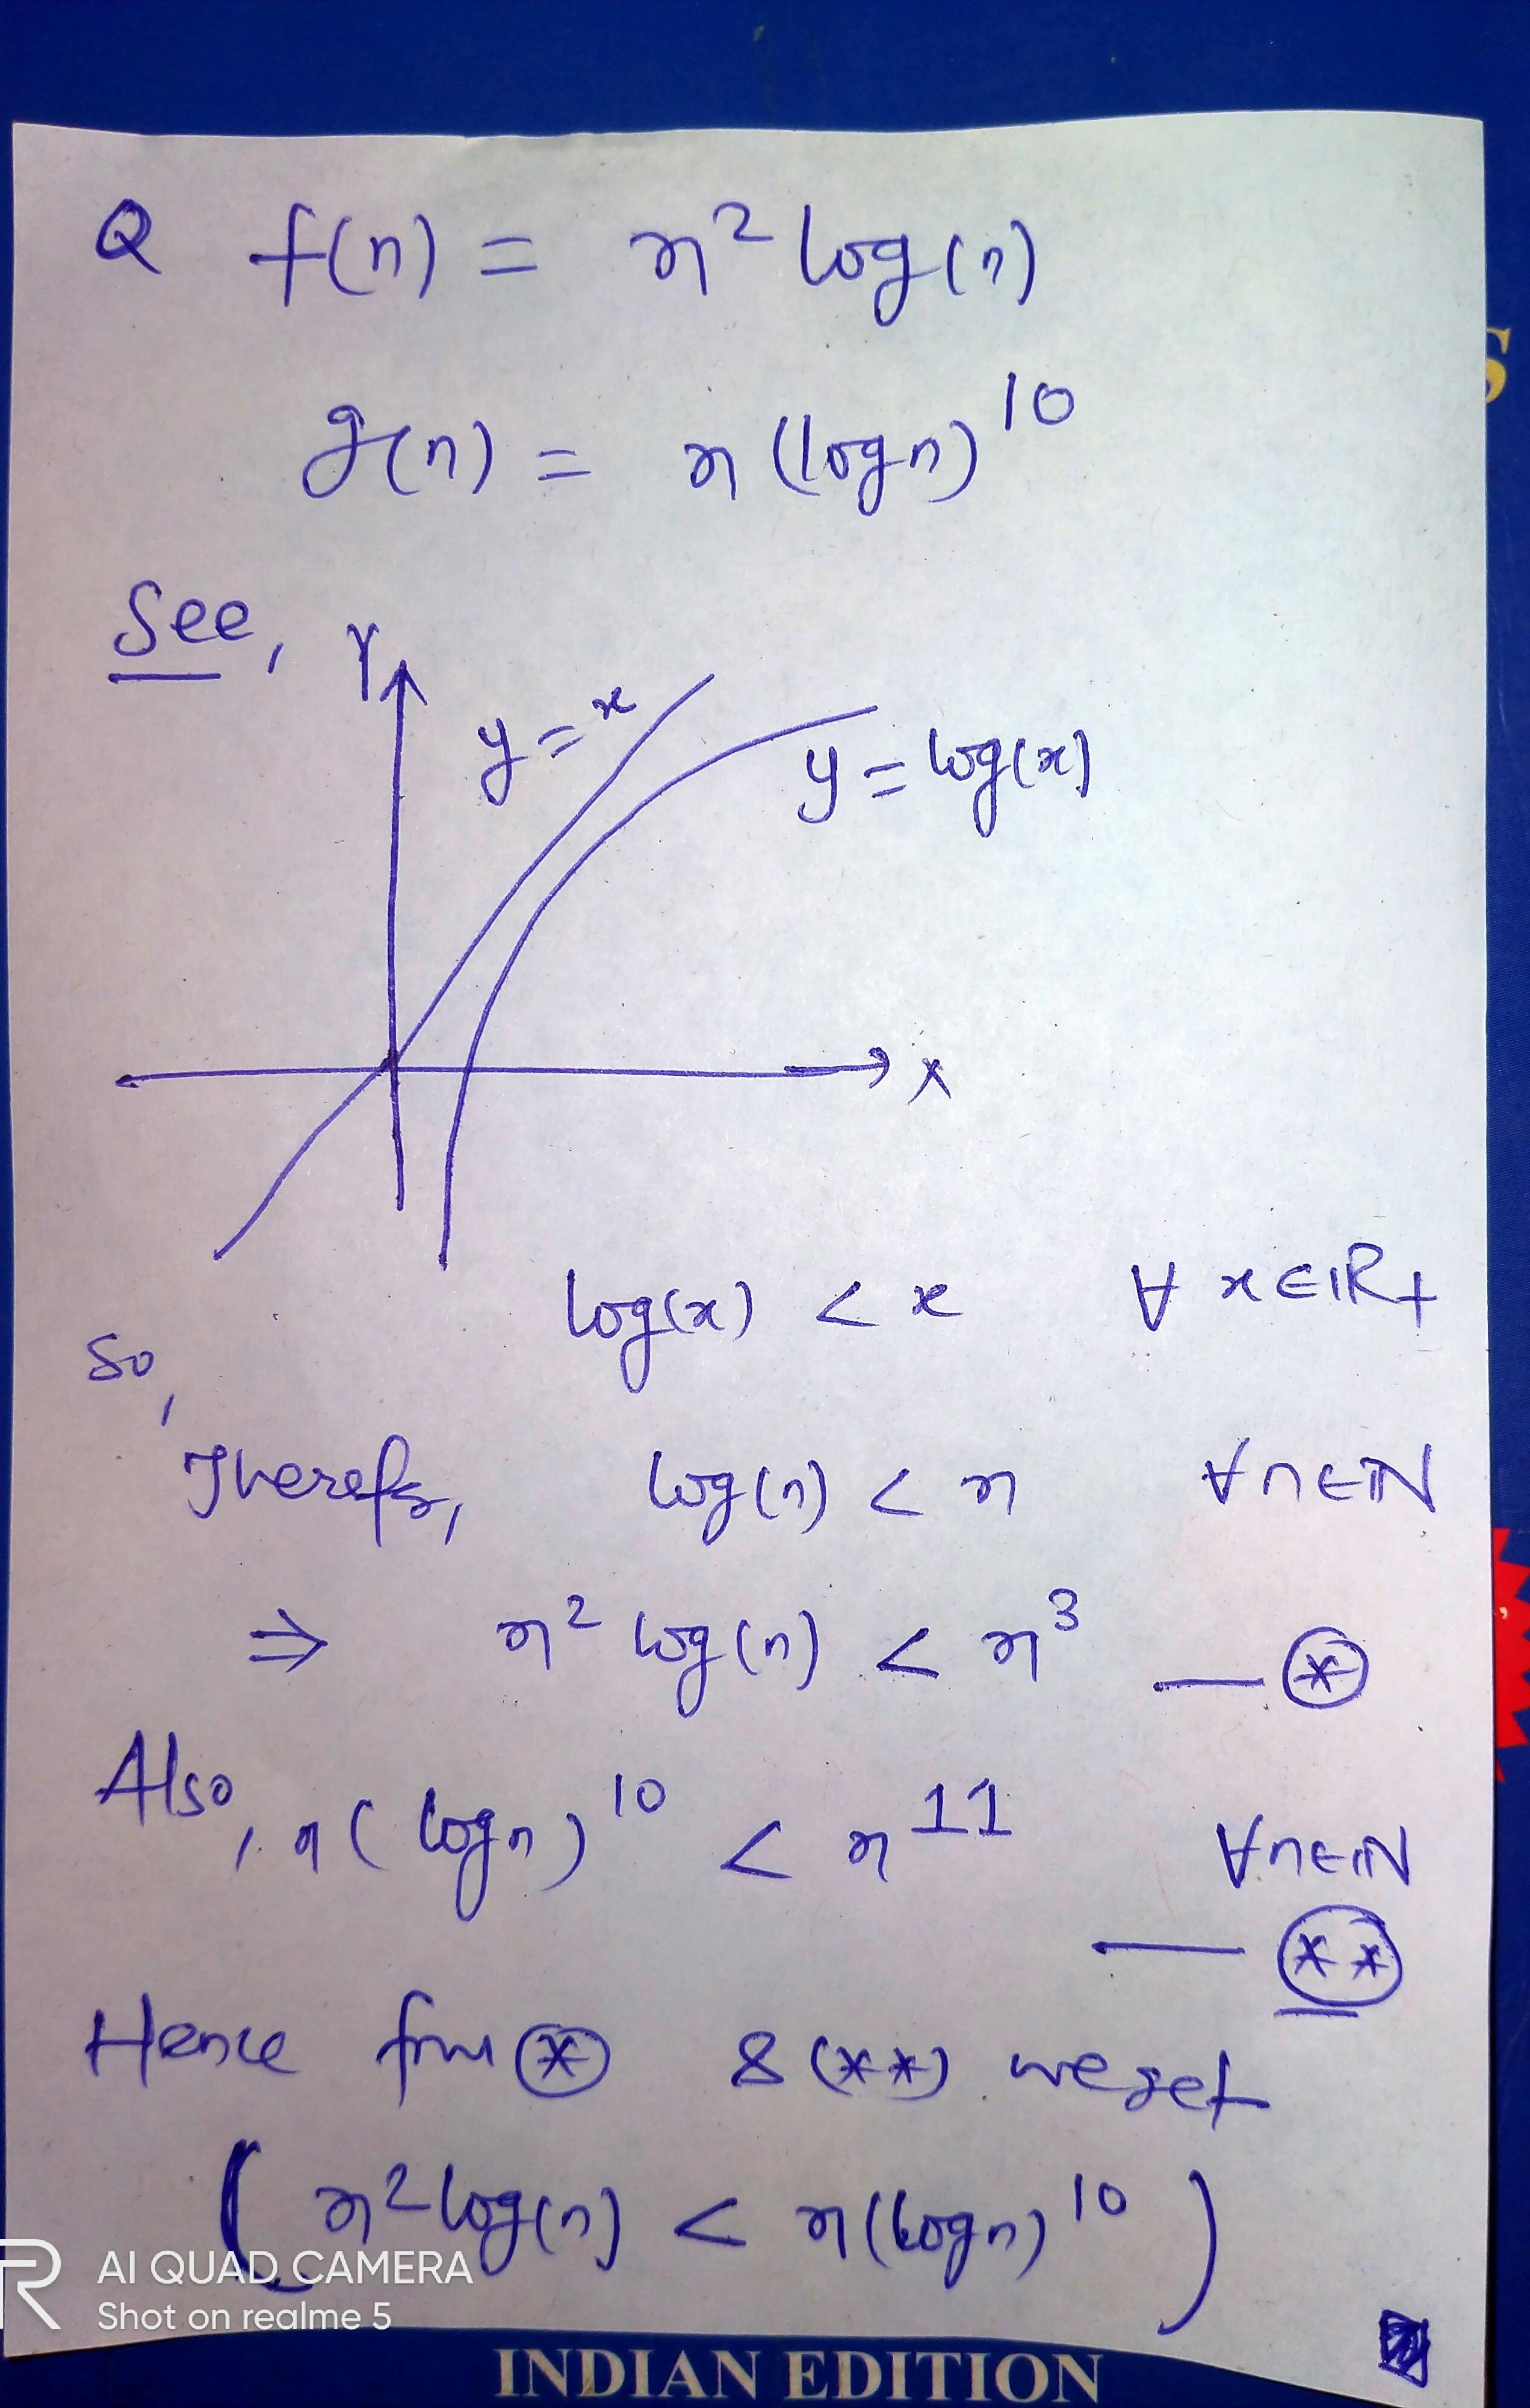 Q f(n) = n² log(n)
g(n) = n (logn)¹⁰
See,
Y
y = x
y = log(x)
X
log(x) < x ∀ x ∈ ℝ+
So,
Therefr, log(n) < n ∀n∈ℕ
⇒ n² log(n) < n³ — ⊛
Also, n( logn)¹⁰ < n¹¹ ∀n∈ℕ
— (**)
Hence frm ⊛ & (**) we get
( n² log(n) < n(logn)¹⁰ )
R AI QUAD CAMERA
Shot on realme 5
INDIAN EDITION
S